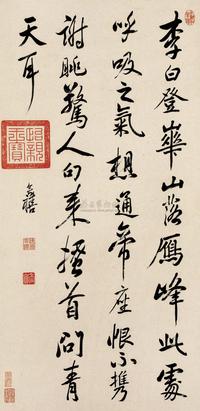 李白登華山落雁峰此處
呼吸之氣想通帝座恨不攜
謝眺驚人句來搔首問青
天耳